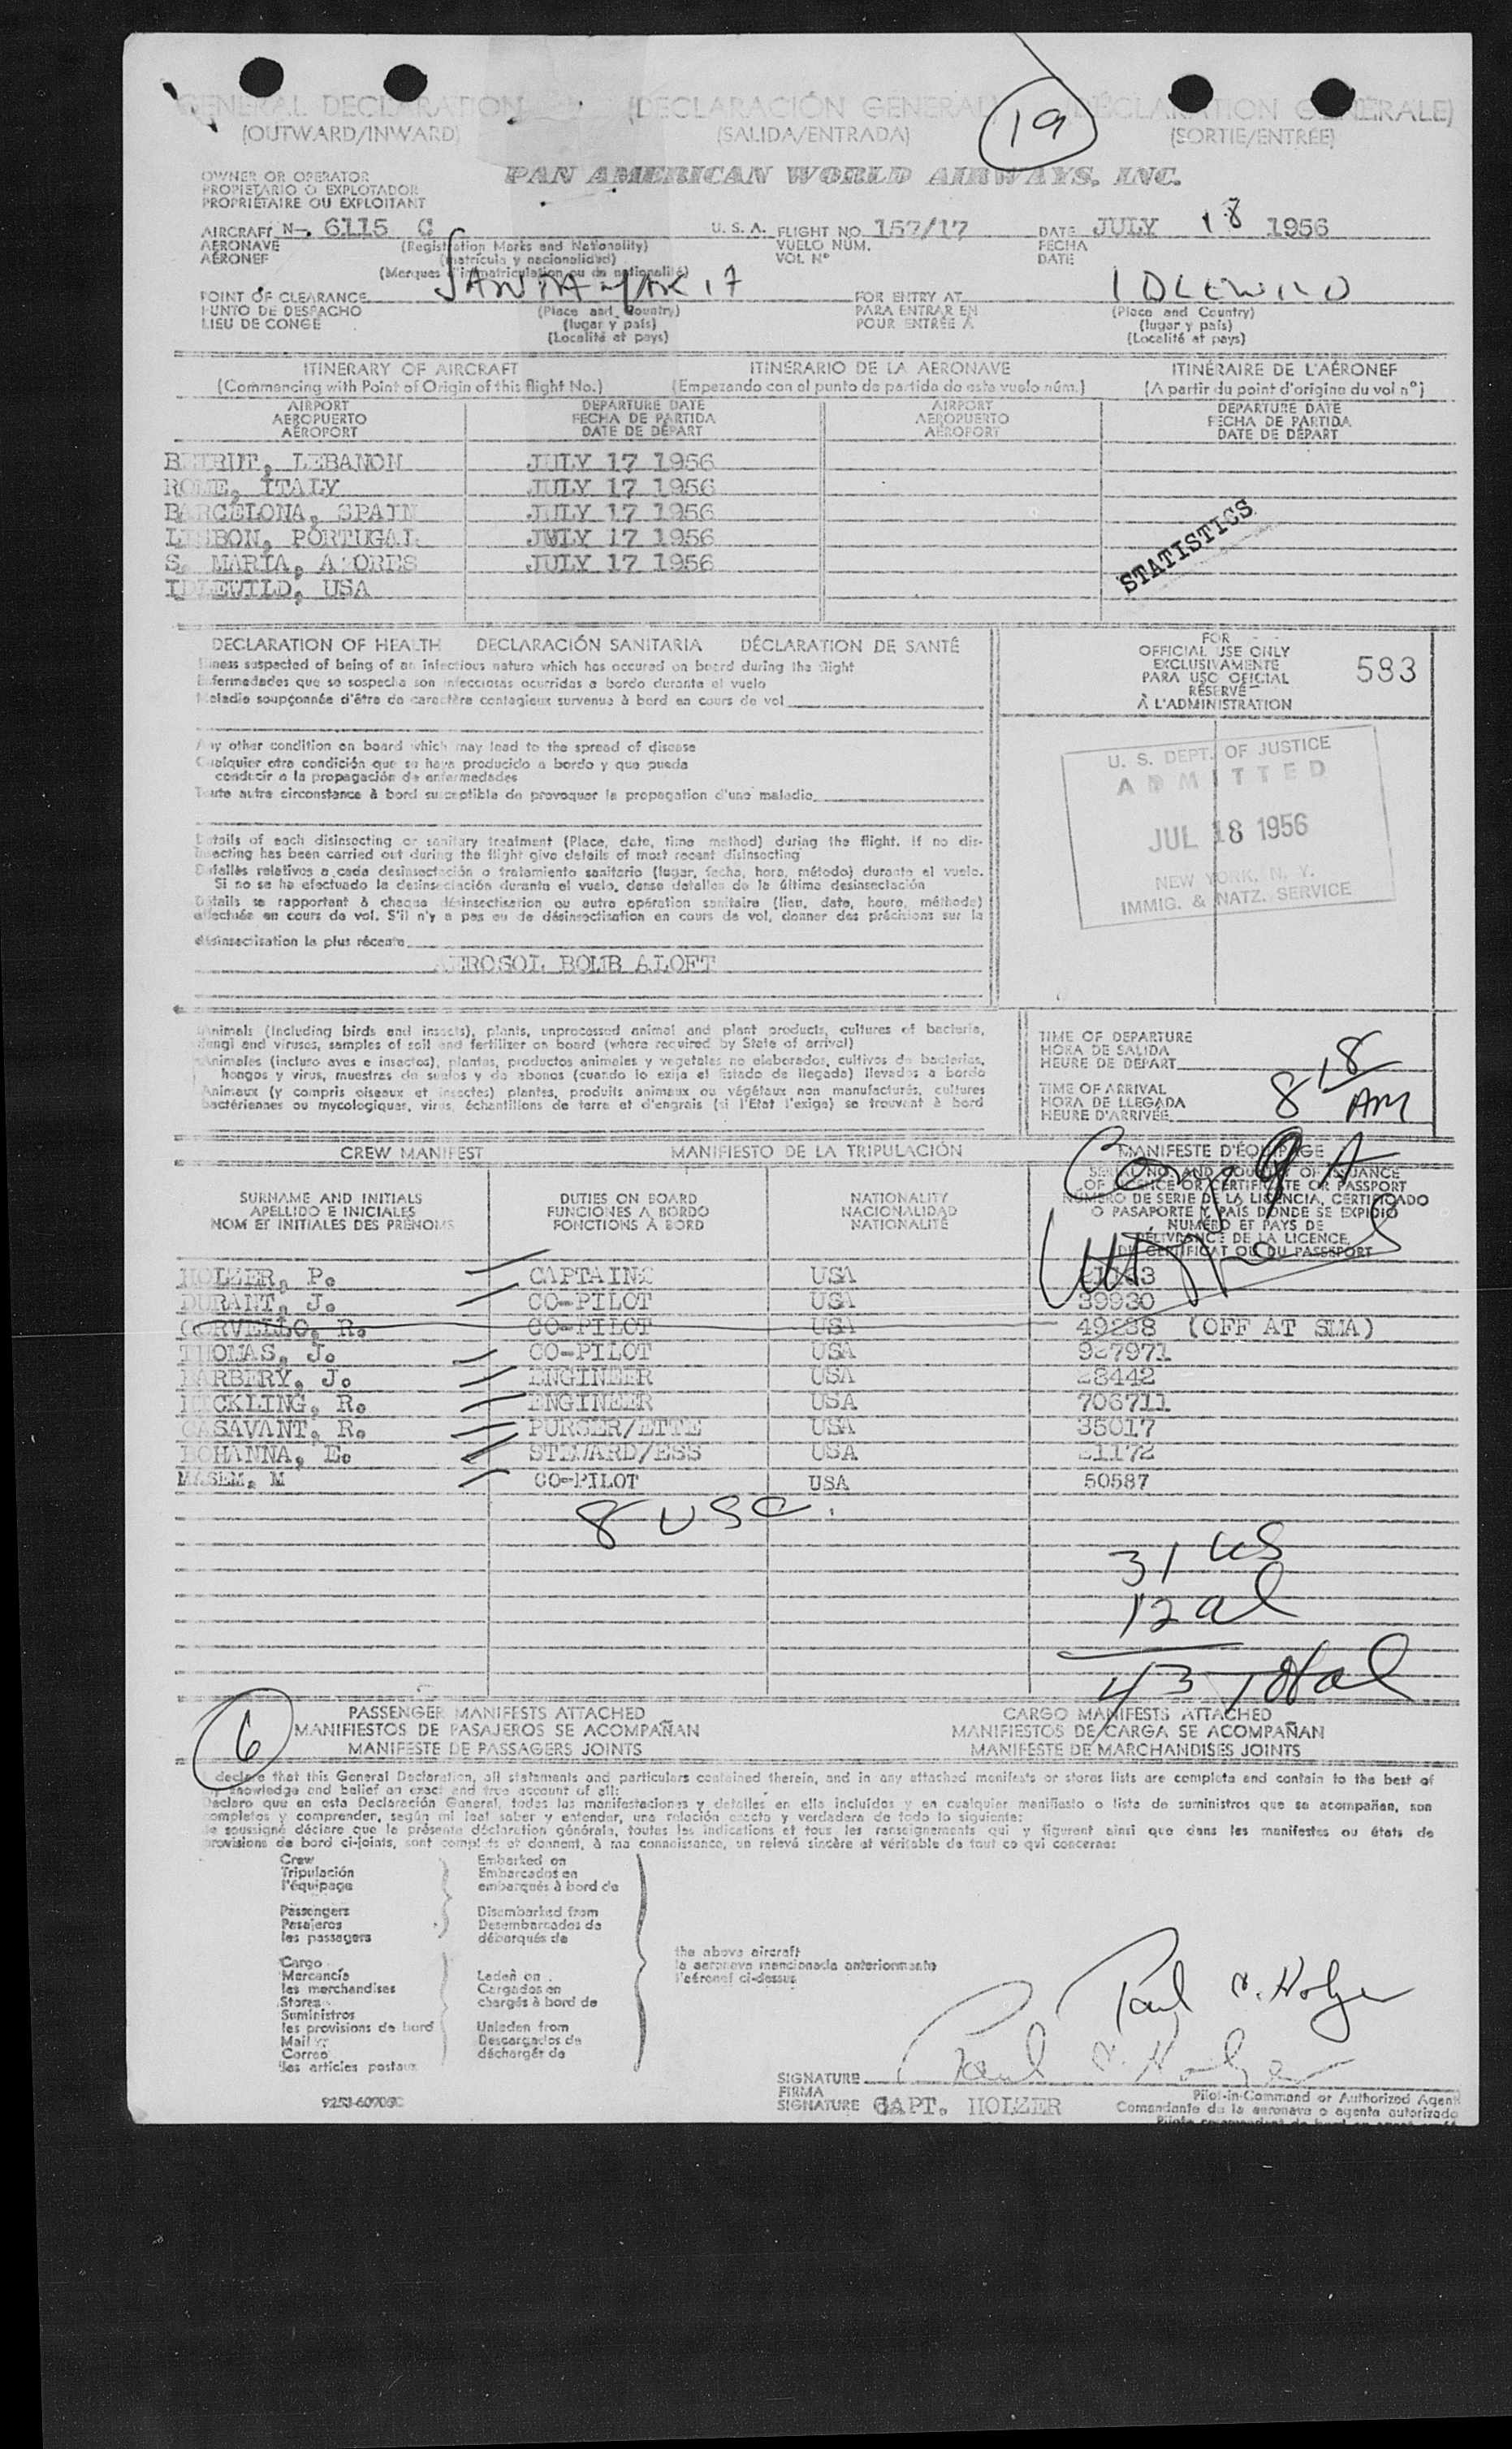 GENERAL DECLARATION (DECLARACIÓN GENERAL) (DÉCLARATION GÉNÉRALE)
(OUTWARD/INWARD) (SALIDA/ENTRADA) 19 (SORTIE/ENTRÉE)
OWNER OR OPERATOR
PROPIETARIO O EXPLOTADOR
PROPRIÉTAIRE OU EXPLOITANT
PAN AMERICAN WORLD AIRWAYS, INC.
AIRCRAFT N- 6115 C U. S. A. FLIGHT NO. 157/17 DATE JULY 18 1956
AERONAVE (Registration Marks and Nationality) VUELO NÚM. FECHA
AÉRONEF (matrícula y nacionalidad) VOL Nº DATE
(Marques d'immatriculation ou de nationalité)
POINT OF CLEARANCE FOR ENTRY AT IDLEWILD
PUNTO DE DESPACHO (Place and Country) PARA ENTRAR EN (Place and Country)
LIEU DE CONGÉ (lugar y país) POUR ENTRÉE À (lugar y país)
(Localité et pays) (Localité et pays)
ITINERARY OF AIRCRAFT ITINERARIO DE LA AERONAVE ITINÉRAIRE DE L'AÉRONEF
(Commencing with Point of Origin of this flight No.) (Empezando con el punto de partida de este vuelo núm.) (A partir du point d'origine du vol nº)
AIRPORT DEPARTURE DATE AIRPORT DEPARTURE DATE
AEROPUERTO FECHA DE PARTIDA AEROPUERTO FECHA DE PARTIDA
AÉROPORT DATE DE DÉPART AÉROPORT DATE DE DÉPART
BEIRUT, LEBANON JULY 17 1956
ROME, ITALY JULY 17 1956
BARCELONA, SPAIN JULY 17 1956
LISBON, PORTUGAL JULY 17 1956
S. MARIA, AZORES JULY 17 1956
IDLEWILD, USA
STATISTICS
DECLARATION OF HEALTH DECLARACIÓN SANITARIA DÉCLARATION DE SANTÉ
Illness suspected of being of an infectious nature which has occured on board during the flight
Enfermedades que se sospecha son infecciosas ocurridas a bordo durante el vuelo
Maladie soupçonnée d'être de caractère contagieux survenue à bord en cours de vol
Any other condition on board which may lead to the spread of disease
Cualquier otra condición que se haya producido a bordo y que pueda
conducir a la propagación de enfermedades
Toute autre circonstance à bord susceptible de provoquer la propagation d'une maladie
Details of each disinsecting or sanitary treatment (Place, date, time method) during the flight. If no dis-
insecting has been carried out during the flight give details of most recent disinsecting
Detalles relativos a cada desinsectación o tratamiento sanitario (lugar, fecha, hora, método) durante el vuelo.
Si no se ha efectuado la desinsectación durante el vuelo, dense detalles de la última desinsectación
Détails se rapportant à chaque désinsectisation ou autre opération sanitaire (lieu, date, heure, méthode)
effectuée en cours de vol. S'il n'y a pas eu de désinsectisation en cours de vol, donner des précisions sur la
désinsectisation la plus récente
AEROSOL BOMB ALOFT
FOR
OFFICIAL USE ONLY
EXCLUSIVAMENTE
PARA USO OFICIAL
RÉSERVÉ
À L'ADMINISTRATION
583
U. S. DEPT. OF JUSTICE
ADMITTED
JUL 18 1956
NEW YORK, N. Y.
IMMIG. & NATZ. SERVICE
Animals (Including birds and insects), plants, unprocessed animal and plant products, cultures of bacteria,
fungi and viruses, samples of soil and fertilizer on board (where required by State of arrival)
Animales (incluso aves e insectos), plantas, productos animales y vegetales no elaborados, cultivos de bacterias,
hongos y virus, muestras de suelos y de abonos (cuando lo exija el Estado de llegada) llevados a bordo
Animaux (y compris oiseaux et insectes) plantes, produits animaux ou végétaux non manufacturés, cultures
bactériennes ou mycologiques, virus, échantillons de terre et d'engrais (si l'Etat l'exige) se trouvant à bord
TIME OF DEPARTURE
HORA DE SALIDA
HEURE DE DÉPART
TIME OF ARRIVAL
HORA DE LLEGADA
HEURE D'ARRIVÉE
8 18 AM
CREW MANIFEST MANIFIESTO DE LA TRIPULACIÓN MANIFESTE D'ÉQUIPAGE
SURNAME AND INITIALS DUTIES ON BOARD NATIONALITY
APELLIDO E INICIALES FUNCIONES A BORDO NACIONALIDAD
NOM ET INITIALES DES PRÉNOMS FONCTIONS À BORD NATIONALITÉ
SERIAL NO. AND COUNTRY OF ISSUANCE
OF LICENCE OR CERTIFICATE OR PASSPORT
NÚMERO DE SERIE DE LA LICENCIA, CERTIFICADO
O PASAPORTE Y PAÍS DONDE SE EXPIDIÓ
NUMÉRO ET PAYS DE
DÉLIVRANCE DE LA LICENCE,
DU CERTIFICAT OU DU PASSEPORT
HOLZER, P. CAPTAIN USA
DURANT, J. CO-PILOT USA 39930
CORVELLO, R. CO-PILOT USA 49238 (OFF AT SMA)
THOMAS, J. CO-PILOT USA 927971
BARBERY, J. ENGINEER USA
HICKLING, R. ENGINEER USA 706711
CASAVANT, R. PURSER/ETTE USA 35017
BOHANNA, E. STEWARD/ESS USA
MASEM, M CO-PILOT USA 50587
8 USC.
31 US
12 al
43 Total
6
PASSENGER MANIFESTS ATTACHED CARGO MANIFESTS ATTACHED
MANIFIESTOS DE PASAJEROS SE ACOMPAÑAN MANIFIESTOS DE CARGA SE ACOMPAÑAN
MANIFESTE DE PASSAGERS JOINTS MANIFESTE DE MARCHANDISES JOINTS
declare that this General Declaration, all statements and particulars contained therein, and in any attached manifests or stores lists are complete and contain to the best of
my knowledge and belief an exact and true account of all:
Declaro que en esta Declaración General, todas las manifestaciones y detalles en ella incluidos y en cualquier manifiesto o lista de suministros que se acompañan, son
completos y comprender, según mi leal saber y entender, una relación exacta y verdadera de todo lo siguiente:
Je soussigné déclare que la présente déclaration générale, toutes les indications et tous les renseignements qui y figurent ainsi que dans les manifestes ou états de
provisions de bord ci-joints, sont complets et donnent, à ma connaissance, un relevé sincère et véritable de tout ce qui concerne:
Crew Embarked on
Tripulación Embarcados en
l'équipage embarqués à bord de
Passengers Disembarked from
Pasajeros Desembarcados de
les passagers débarqués de
the above aircraft
la aeronave mencionada anteriormente
l'aéronef ci-dessus
Cargo
Mercancía Laden on
les marchandises Cargados en
Stores chargés à bord de
Suministros
les provisions de bord Unladen from
Mail Descargados de
Correo déchargés de
les articles postaux
Paul N. Holzer
Paul N. Holzer
SIGNATURE
FIRMA
SIGNATURE CAPT. HOLZER
Pilot-in-Command or Authorized Agent
Comandante de la aeronave o agente autorizado
9253-60706C